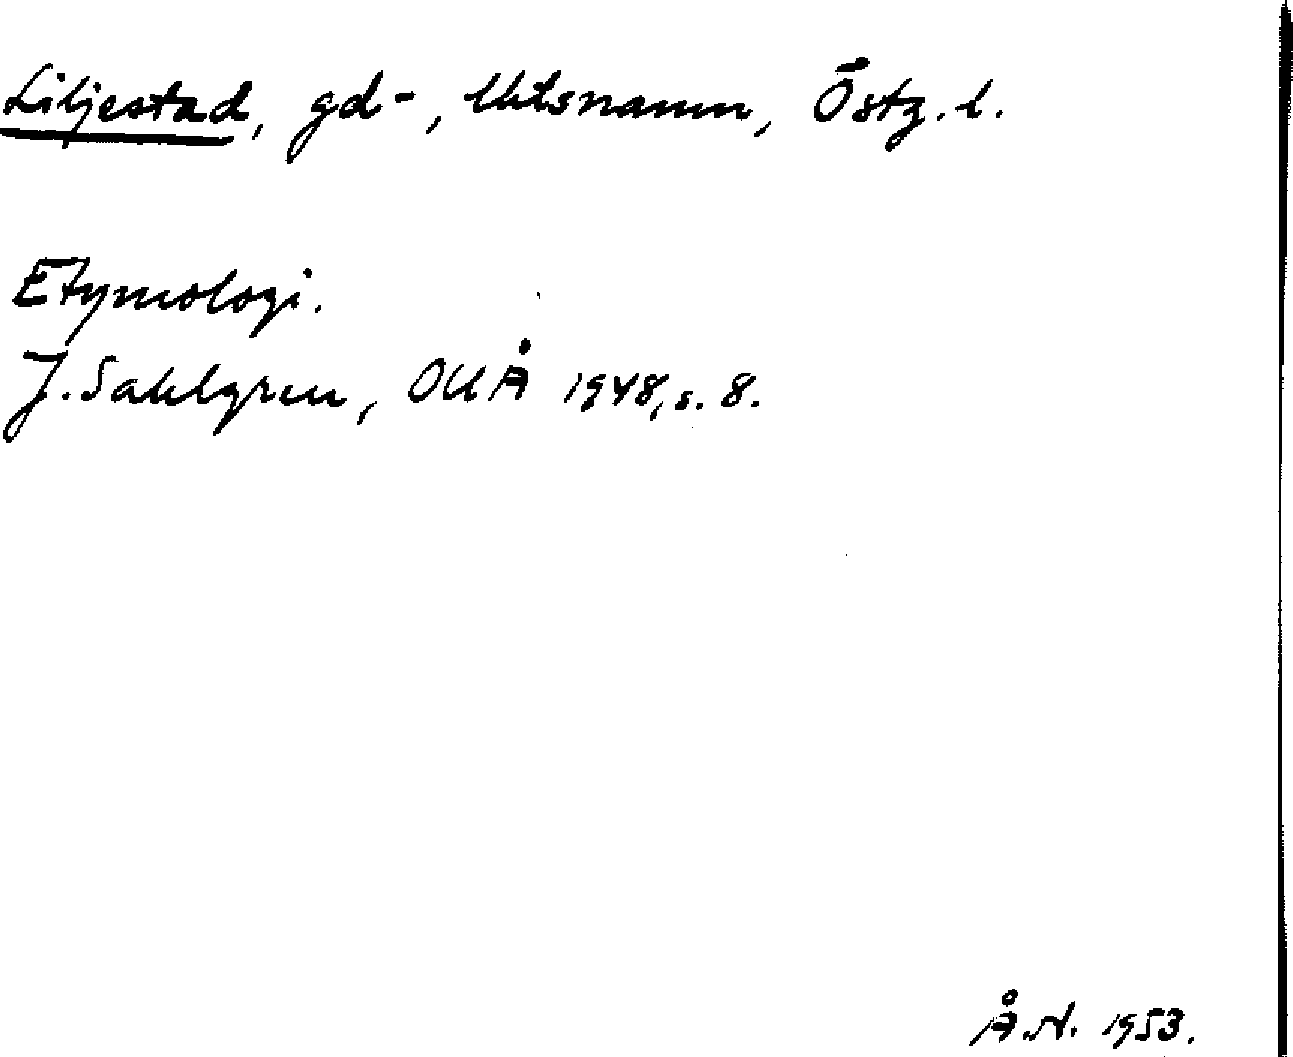 Liljestad, gd-, ortsnamn, Östg. l.
Etymologi.
J. Sahlgren, OUÅ 1948, s. 8.
Å.N. 1953.